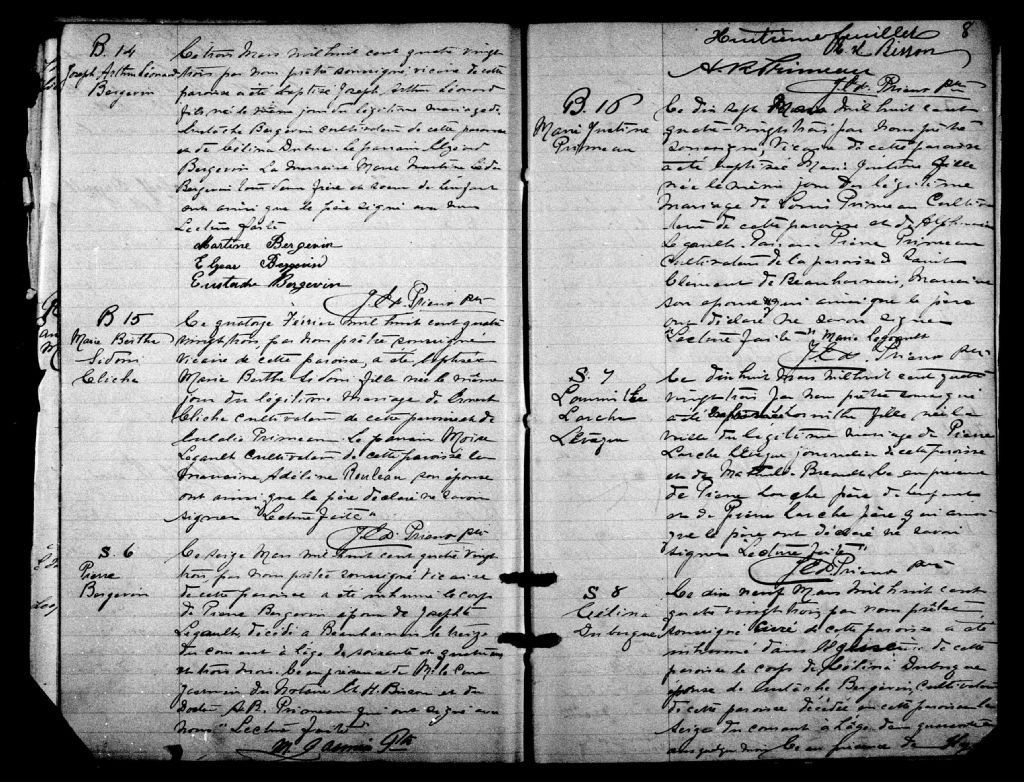 B. 14
Joseph Arthur Léonard
Bergevin
Le trois Mars mil huit cent quatre vingt
trois par nous prêtre soussigné, vicaire de cette
paroisse a été baptisé Joseph Arthur Léonard
fils, né le même jour du légitime mariage de
Eustache Bergevin cultivateur de cette paroisse
et de Célina Le parrain Elzéard
Bergevin La marraine Marie Martine
Bergevin tous deux frère et soeur de l'enfant
ont ainsi que le père signé avec nous
Lecture faite
Martine Bergevin
Elzear Bergevin
Eustache Bergevin
J. Ed. Prieur ptre
B 15
Marie Berthe
Sédoni
Cliche
Le quatorze Février mil huit cent quatre
vingt trois par nous prêtre soussigné
vicaire de cette paroisse, a été baptisée
Marie Berthe Sédoni fille née le même
jour du légitime mariage de
Cliche cultivateur de cette paroisse et de
Eulalie Primeau Le parrain Moise
Legault cultivateur de cette paroisse la
marraine Adéline Rouleau son épouse
ont ainsi que le père déclaré ne savoir
signer "Lecture faite"
J. Ed. Prieur ptre
S. 6
Pierre
Bergevin
Le seize Mars mil huit cent quatre vingt
trois par nous prêtre soussigné vicaire
de cette paroisse a été inhumé le corps
de Pierre Bergevin époux de Josephte
Legault, décédé à Beauharnois le treize
du courant à l'âge de soixante et quatre ans
et trois mois. en présence de M. le Curé
Jasmin du Notaire Et H. Bisson et du
docteur A.R. Primeau qui ont signé avec
nous "Lecture faite"
Mr Jasmin Ptre
8
Huitième feuillet
H. Bisson
A. R. Primeau
J. Ed. Prieur Ptre
B. 16
Marie Justine
Primeau
Le dix sept Mars mil huit cent
quatre-vingt trois par nous prêtre
soussigné, Vicaire de cette paroisse
a été baptisée Marie Justine fille
née le même jour du légitime
mariage de Louis Primeau Cultiva
teur de cette paroisse et de
Legault Parrain Pierre Primeau
cultivateur de la paroisse de Saint
Clément de Beauharnois, Marraine
son épouse qui ainsi que le père
ont déclaré ne savoir signer
Lecture faite Marie Legault
J. Ed. Prieur ptre
S. 7
Larche
Lévêque
Le dix huit Mars mil huit cent quatre
vingt trois par nous prêtre soussigné
a été fille née la
veille du légitime mariage de Pierre
Larche Lévêque journalier de cette paroisse
et de Mathilde Breault en présence
de Pierre Larche père de l'enfant
et de Pierre Larche frère qui ainsi
que le père ont déclaré ne savoir
signer "Lecture faite"
J. Ed. Prieur ptre
S 8
Célina
Dubuque
Le dix neuf Mars mil huit cent
quatre vingt trois par nous prêtre
soussigné Curé de cette paroisse a été
inhumé dans de cette
paroisse le corps de Célina Dubuque
épouse de Eustache Bergevin, Cultivateur
de cette paroisse décédée en cette paroisse le
seize du courant à l'âge de quarante
en présence de